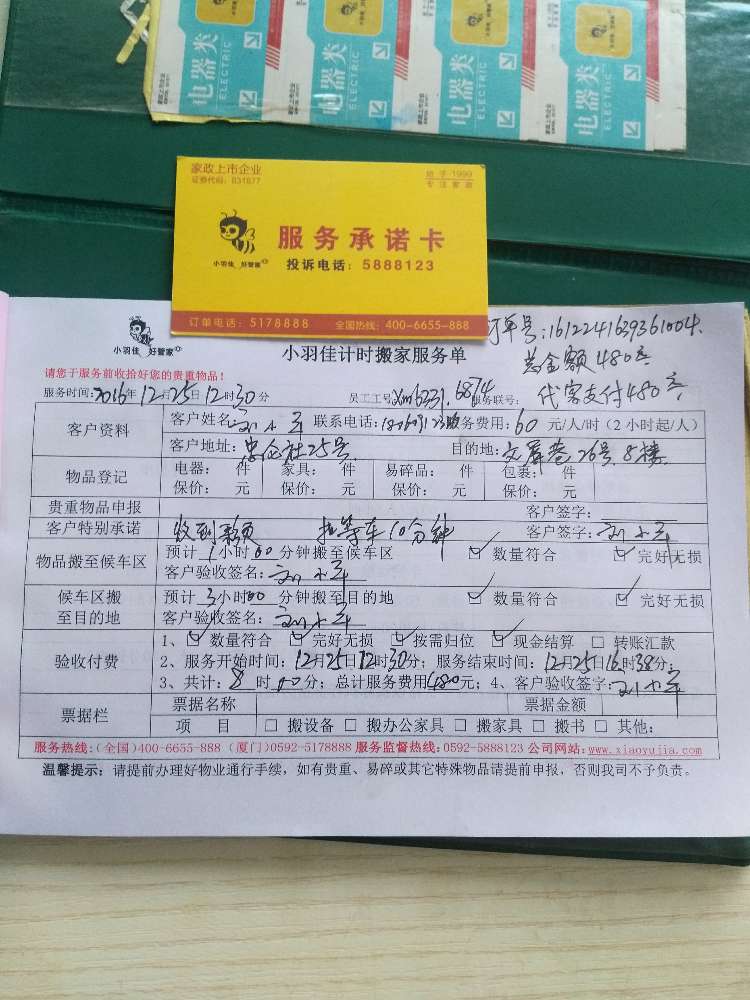 电器类 电器类 电器类 电器类
ELECTRIC ELECTRIC ELECTRIC ELECTRIC
家政上市企业
证券代码：831877
始于1999
专注家政
服务承诺卡
小羽佳 好管家
投诉电话：5888123
订单电话：5178888 全国热线：400-6655-888
订单号:1612241639361004.
小羽佳 好管家
小羽佳计时搬家服务单
总金额480元
请您于服务前收拾好您的贵重物品！
代客支付480元
服务时间:2016年12月25日12时30分 员工工号:xm6231.6874 服务联号:
客户资料
客户姓名: 联系电话: 服务费用:60元/人/时（2小时起/人）
客户地址: 25号 目的地:文屏巷26号8楼
物品登记
电器： 件 家具： 件 易碎品： 件 包裹： 件
保价： 元 保价： 元 保价： 元 保价： 元
贵重物品申报 客户签字:
客户特别承诺 收到 等车10分钟 客户签字:
物品搬至候车区
预计1小时00分钟搬至候车区 数量符合 完好无损
客户验收签名:
候车区搬至目的地
预计3小时00分钟搬至目的地 数量符合 完好无损
客户验收签名:
验收付费
1、 数量符合 完好无损 按需归位 现金结算 转账汇款
2、服务开始时间:12月25日12时30分；服务结束时间:12月25日16时38分；
3、共计:8时00分；总计服务费用480元；4、客户验收签字:
票据栏
票据名称 票据金额
项 目 搬设备 搬办公家具 搬家具 搬书 其他:
服务热线:(全国)400-6655-888 (厦门)0592-5178888 服务监督热线:0592-5888123 公司网站:www.xiaoyujia.com
温馨提示：请提前办理好物业通行手续，如有贵重、易碎或其它特殊物品请提前申报，否则我司不予负责。